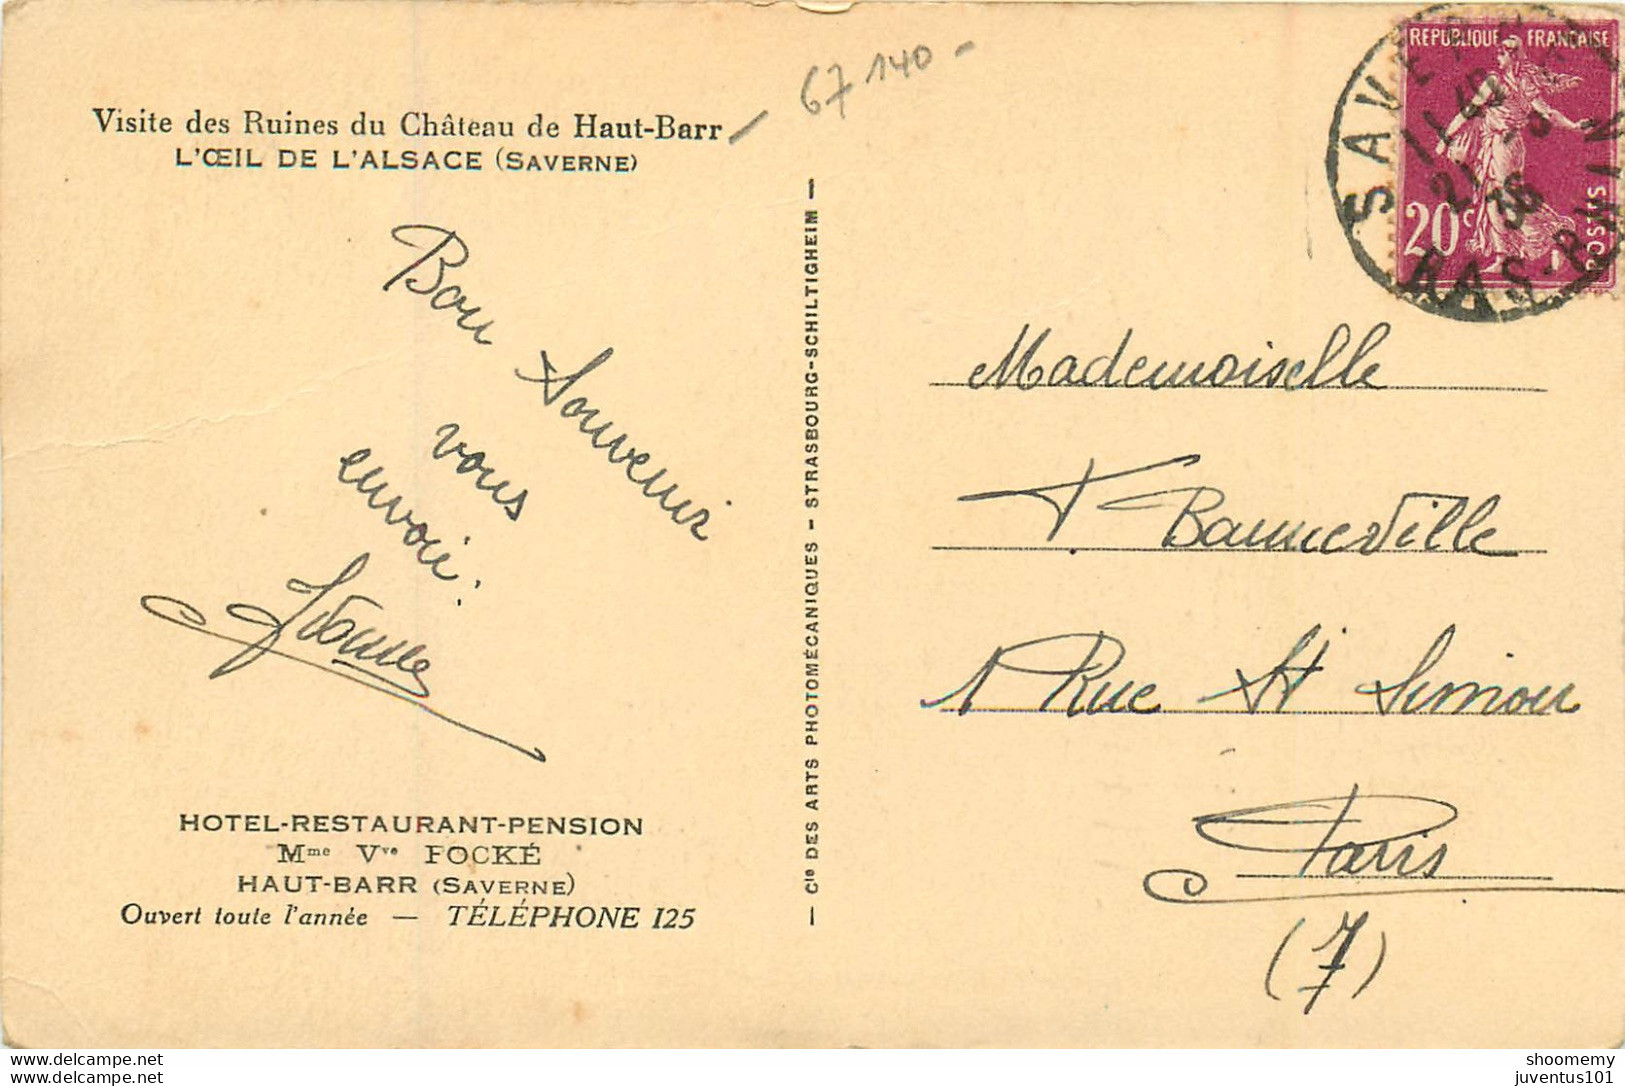 67 140 -
Visite des Ruines du Château de Haut-Barr
L'ŒIL DE L'ALSACE (SAVERNE)
Bon Souvenir
vous
envoie.
HOTEL-RESTAURANT-PENSION
Mme Vve FOCKÉ
HAUT-BARR (SAVERNE)
Ouvert toute l'année — TÉLÉPHONE 125
— Cie DES ARTS PHOTOMÉCANIQUES - STRASBOURG-SCHILTIGHEIM —
RÉPUBLIQUE FRANÇAISE
20c
POSTES
SAVERNE
21 36
BAS-RHIN
Mademoiselle
Banneville
1 Rue St Simon
Paris
(7)
www.delcampe.net
www.delcampe.net
shoomemy
juventus101